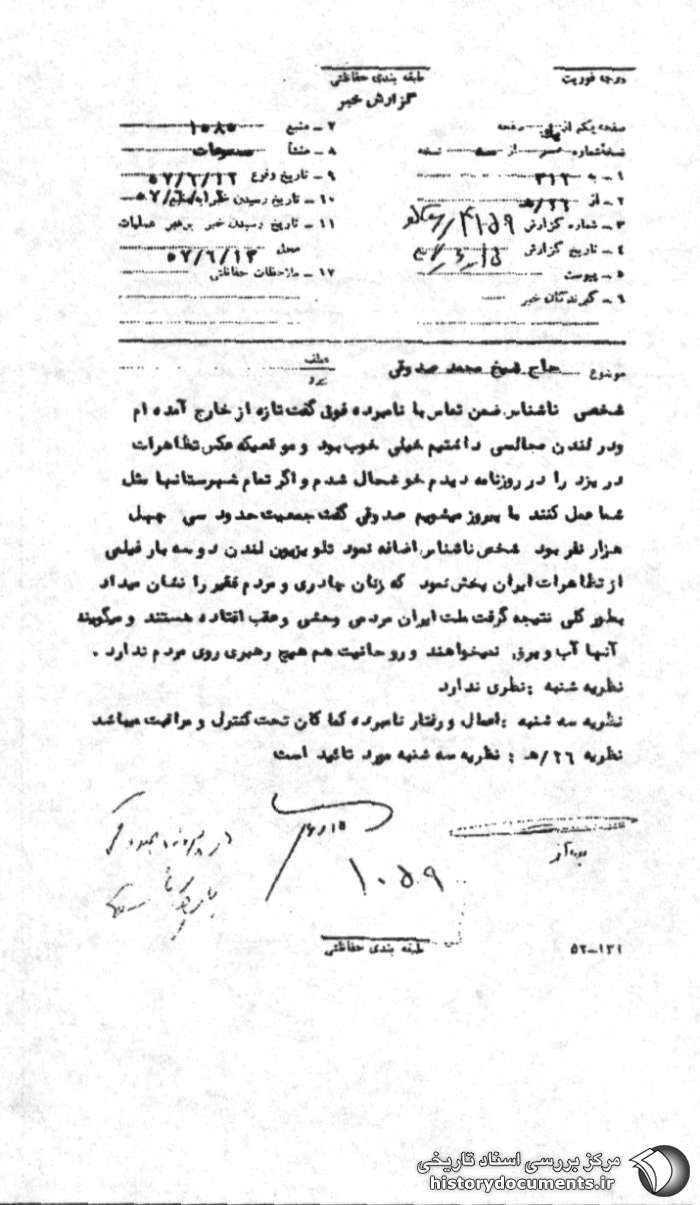 درجه فوریت
طبقه بندی حفاظتی
گزارش خبر
صفحه یکم از صفحه
نسخه شماره از سه نسخه
۱ ـ به ۳۱۲
۲ ـ از ۲۶/ هـ
۳ ـ شماره گزارش
۴ ـ تاریخ گزارش
۵ ـ پیوست
۶ ـ گیرندگان خبر
۷ ـ منبع ۱۰۸۰
۸ ـ منشأ مسموعات
۹ ـ تاریخ وقوع ۵۷/۶/۱۲
۱۰ ـ تاریخ رسیدن خبر به منبع
۱۱ ـ تاریخ رسیدن خبر برهبر عملیات
محل ۵۷/۶/۱۳
۱۲ ـ ملاحظات حفاظتی
موضوع حاج شیخ محمد صدوقی
عطف
پیرو
شخصی ناشناس ضمن تماس با نامبرده فوق گفت تازه از خارج آمده ام
ودر لندن مجالسی داشتیم خیلی خوب بود و موقعیکه عکس تظاهرات
در یزد را در روزنامه دیدم خوشحال شدم و اگر تمام شهرستانها مثل
شما عمل کنند ما پیروز میشویم صدوقی گفت جمعیت حدود سی چهل
هزار نفر بود شخص ناشناس اضافه نمود تلویزیون لندن دو سه بار فیلمی
از تظاهرات ایران پخش نمود که زنان چادری و مردم فقیر را نشان میداد
بطور کلی نتیجه گرفت ملت ایران مردمی وحشی و عقب افتاده هستند و میگویند
آنها آب و برق نمیخواهند و روحانیت هم هیچ رهبری روی مردم ندارد .
نظریه شنبه : نظری ندارد
نظریه سه شنبه : اعمال و رفتار نامبرده کما کان تحت کنترل و مراقبت میباشد
نظریه ۲۶/ هـ : نظریه سه شنبه مورد تائید است
۶/۱۵
۱۰۵۹
طبقه بندی حفاظتی
۵۲-۱۳۱
مرکز بررسی اسناد تاریخی
historydocuments.ir